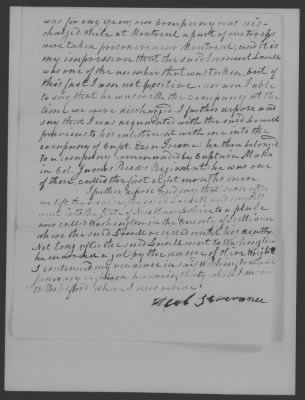 was for one year, our Company was dis-
charged while at Montreal a part of our troops
were taken prisoners near Montreal, and it is
my impression that the said Lovell
was one of the number that was taken, but of
this fact I am not positive nor am I able
to say that he was with the Company at the
time we were discharged. I further depose and
say that I was acquainted with the said Lovell
previous to his enlistment with me into the
company of Capt. he then belonged
to a company commanded by Captain
in Col. James Reeds Regiment he was one
of those called the first eight months men.
I further depose and say that soon after
we left the service, the said Lovell and myself
went into the State of New Hampshire to a place
now called Washington in the County of Sullivan
where the said Lovell resided until his death.
Not long after the said Lovell went to Washington
he married a girl by the name of Olive Wright
I continued my residence in said Washington until
February eighteen hundred thirty when I moved
to where I now reside.
Severance